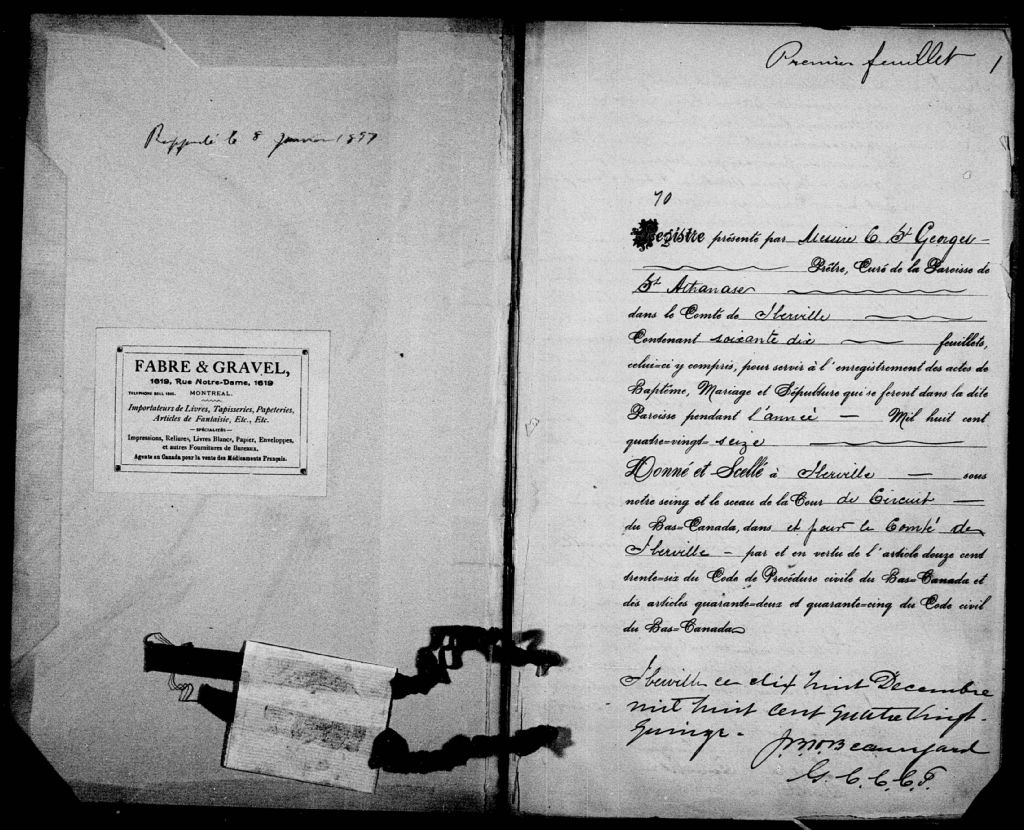 Rapporté le 8 Janvier 1897
FABRE & GRAVEL,
1619, Rue Notre-Dame, 1619
MONTREAL.
Importateurs de Livres, Tapisseries, Papeteries,
Articles de Fantaisie, Etc., Etc.
SPÉCIALITÉS
Impressions, Reliures, Livres Blancs, Papier, Enveloppes,
et autres Fournitures de Bureaux.
Agents au Canada pour la vente des Médicaments Français.
Premier feuillet 1
70
Registre présenté par Messire C. St Georges
Prêtre, Curé de la Paroisse de
St Athanase
dans le Comté de Iberville
Contenant soixante dix feuillets,
celui=ci y compris, pour servir à l'enregistrement des actes de
Baptême, Mariage et Sépulture qui se feront dans la dite
Paroisse pendant l'année — Mil huit cent
quatre=vingt= seize
Donné et Scellé à Iberville — sous
notre seing et le sceau de la Cour de Circuit —
du Bas=Canada, dans et pour le Comté de
Iberville – par et en vertu de l'article douze cent
trente=six du Code de Procédure civile du Bas=Canada et
des articles quarante=deux et quarante=cinq du Code civil
du Bas=Canada
Iberville ce dix huit Decembre
mil huit cent quatre vingt-
quinze -
G. C. C. C. I.